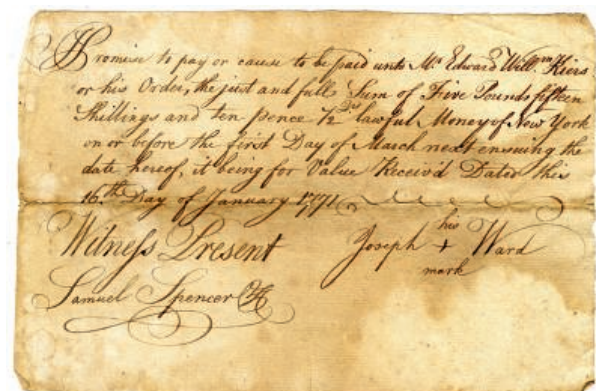 I Promise to pay or cause to be paid unto Mr. Edward Willm. Kiers
or his Order, the just and full Sum of Five Pounds fifteen
Shillings and ten pence 1/2 lawful Money of New York
on or before the first Day of March next ensuing the
date hereof, it being for Value Receiv'd Dated this
16th. Day of January 1771
Witness Present
Joseph his + mark Ward
Samuel Spencer